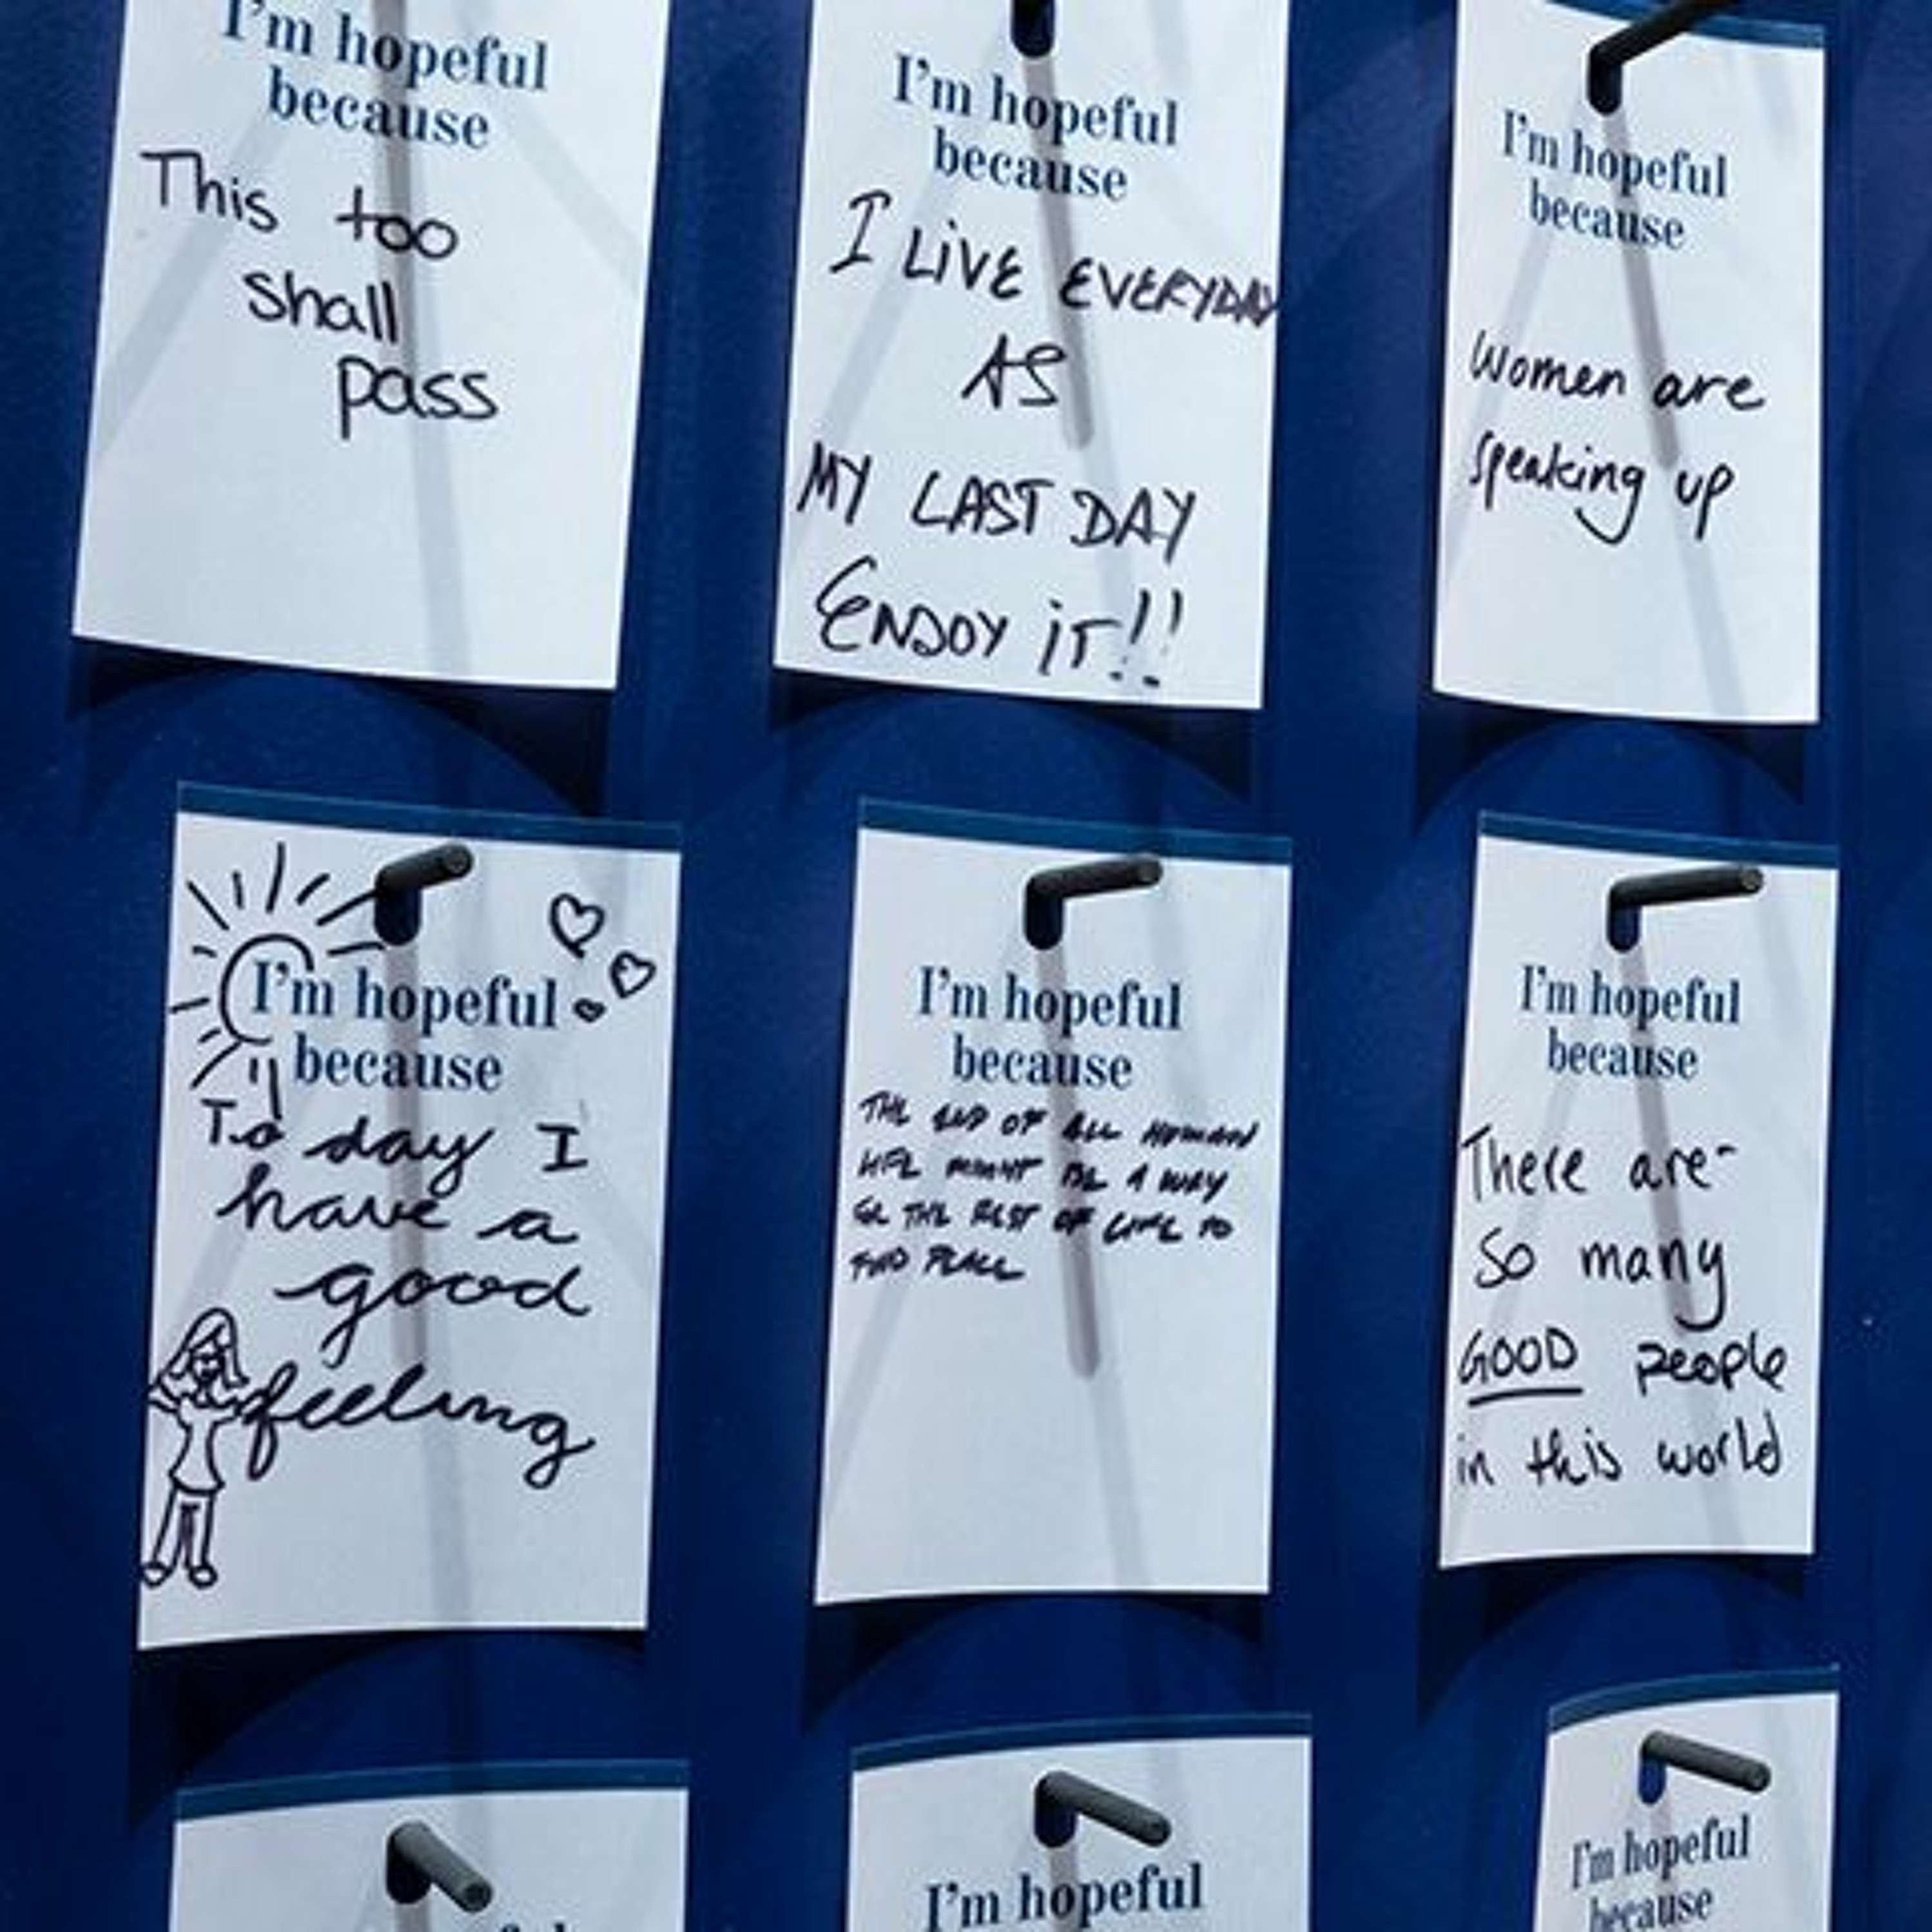 I'm hopeful
because
This too
shall
pass
I'm hopeful
because
I LiVE EVERYDAY
AS
MY LAST DAY
ENJOY iT!!
I'm hopeful
because
Women are
speaking up
I'm hopeful
because
To day I
have a
good
feeling
I'm hopeful
because
THE END OF ALL HUMAN
LIFE MIGHT BE A WAY
THE REST OF LIFE TO
FIND PEACE
I'm hopeful
because
There are
So many
GOOD people
in this world
I'm hopeful
I'm hopeful
because